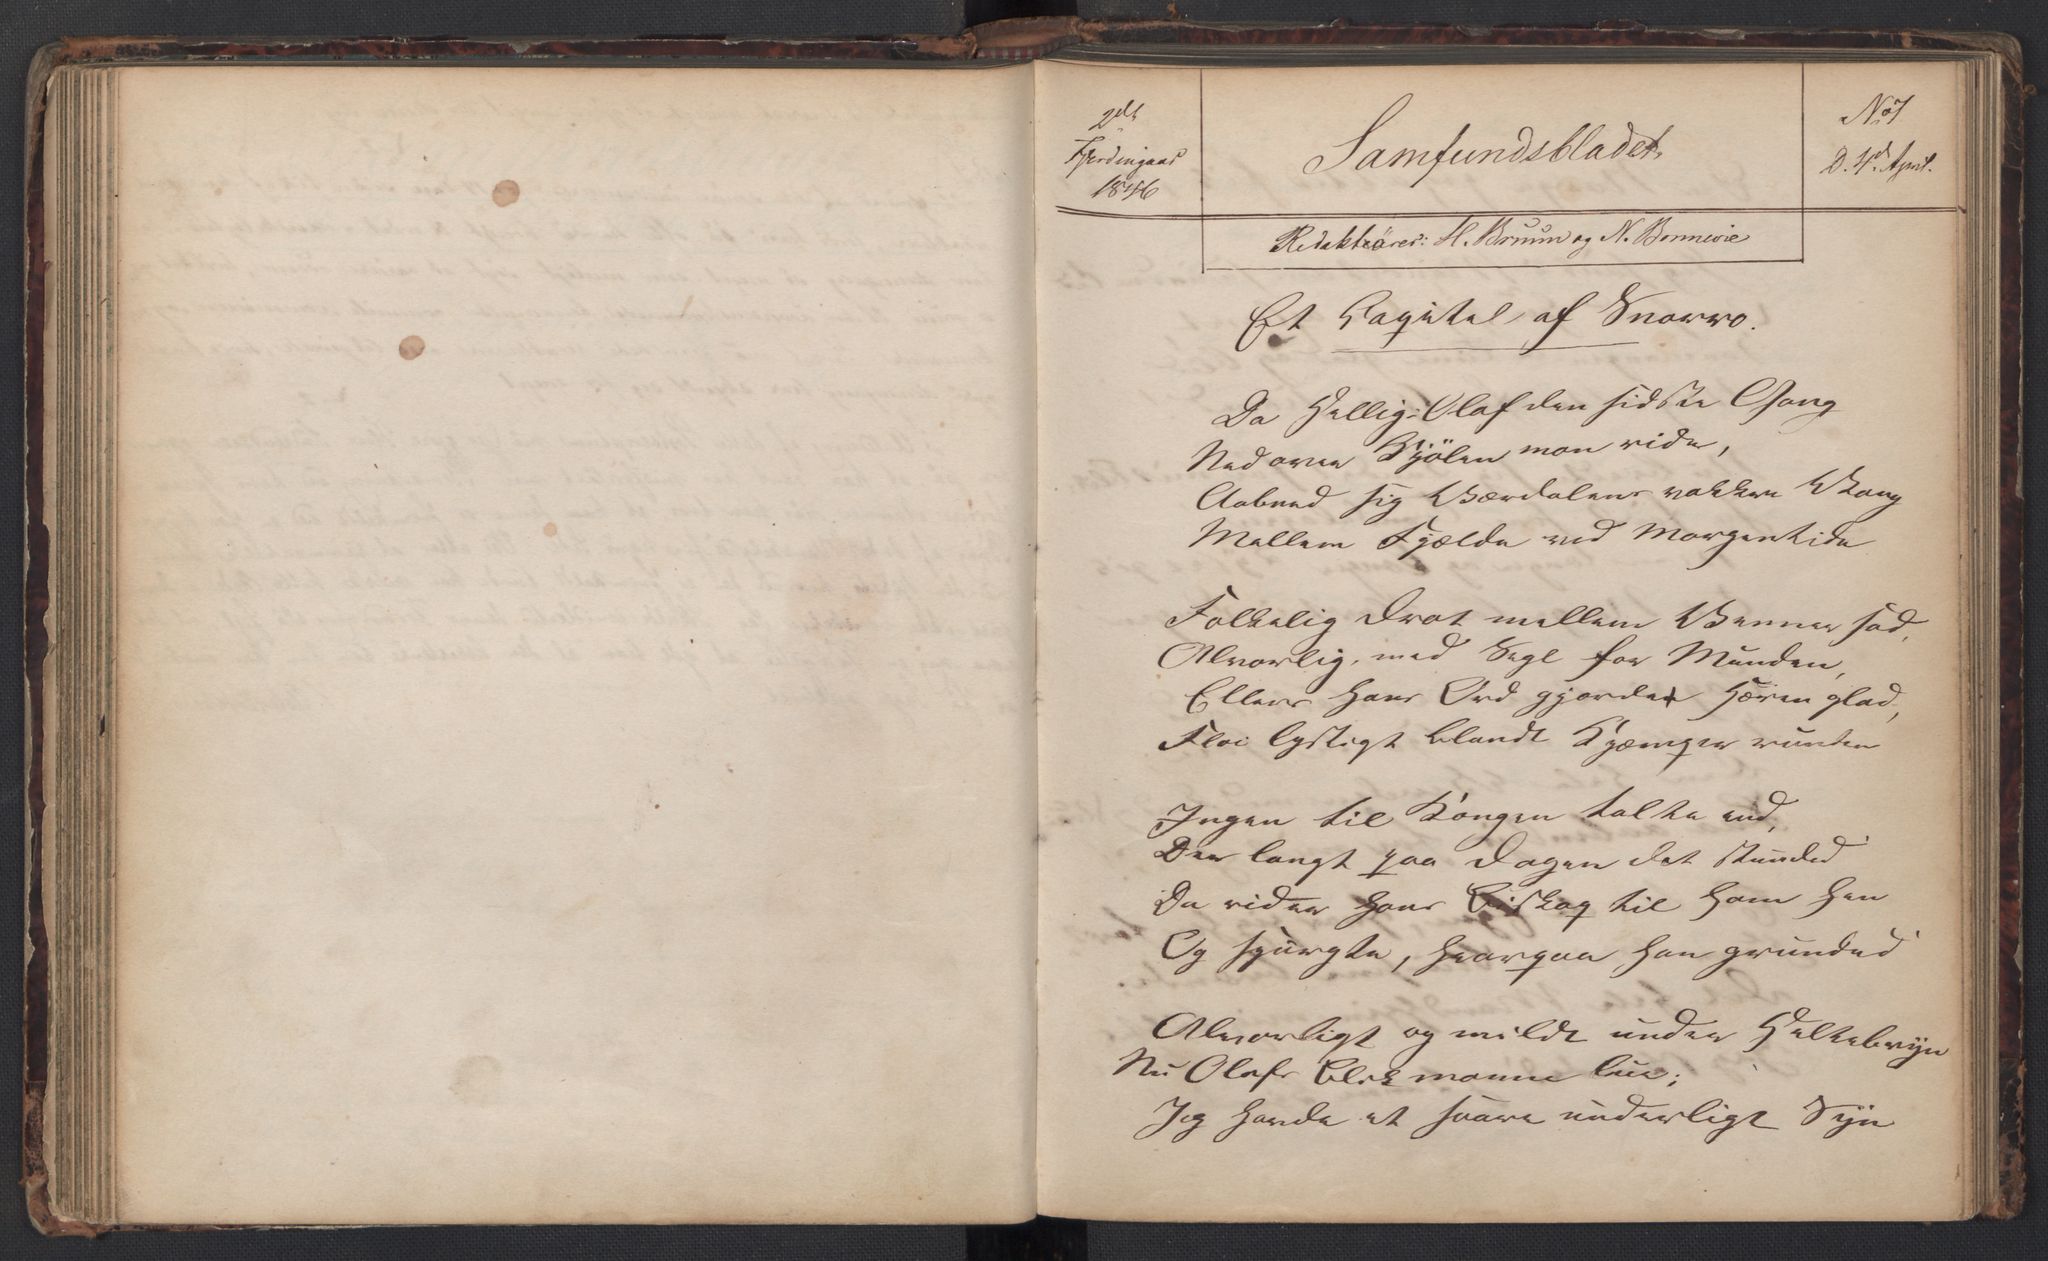 2det
Fjerdingaar
1846
Samfundsbladet.
No 7
D. 4de April.
Redaktører: H. Bruun og N. Bonnevie
Et Capitel af Snorro.
Da Hellig-Olaf den sidste Gang
Ned over Kjölen mon ride,
Aabned sig Værdalens vakkre Vang
Mellem Fjelde ved Morgentide
Folkelig Drot mellem Venner sad,
Alvorlig, med Segl for Munden,
Ellers hans Ord gjorde Hæren glad,
Fløi lystigt blandt Kjæmper runden
Ingen til Kongen talte end,
Der langt paa Dagen det stunded
Da rider hans Biskop til ham hen
Og spurgte, hvorpaa han grunded
Alvorligt og mildt under Heltebryn
Nu Olafs Blik monne lue;
Jeg havde et svare underligt Syn